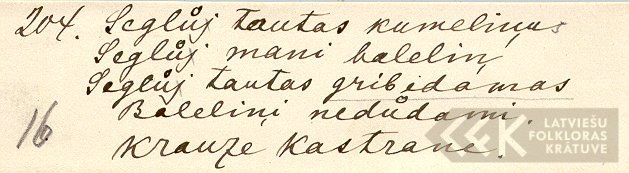 204. Seglůj tautas kumeliņus
Seglůj mani balelin,
Seglůj tautas gribedamas
Balelini nedůdami.
16
Krauze, Kastrane.
LATVIEŠU
FOLKLORAS
KRĀTUVE